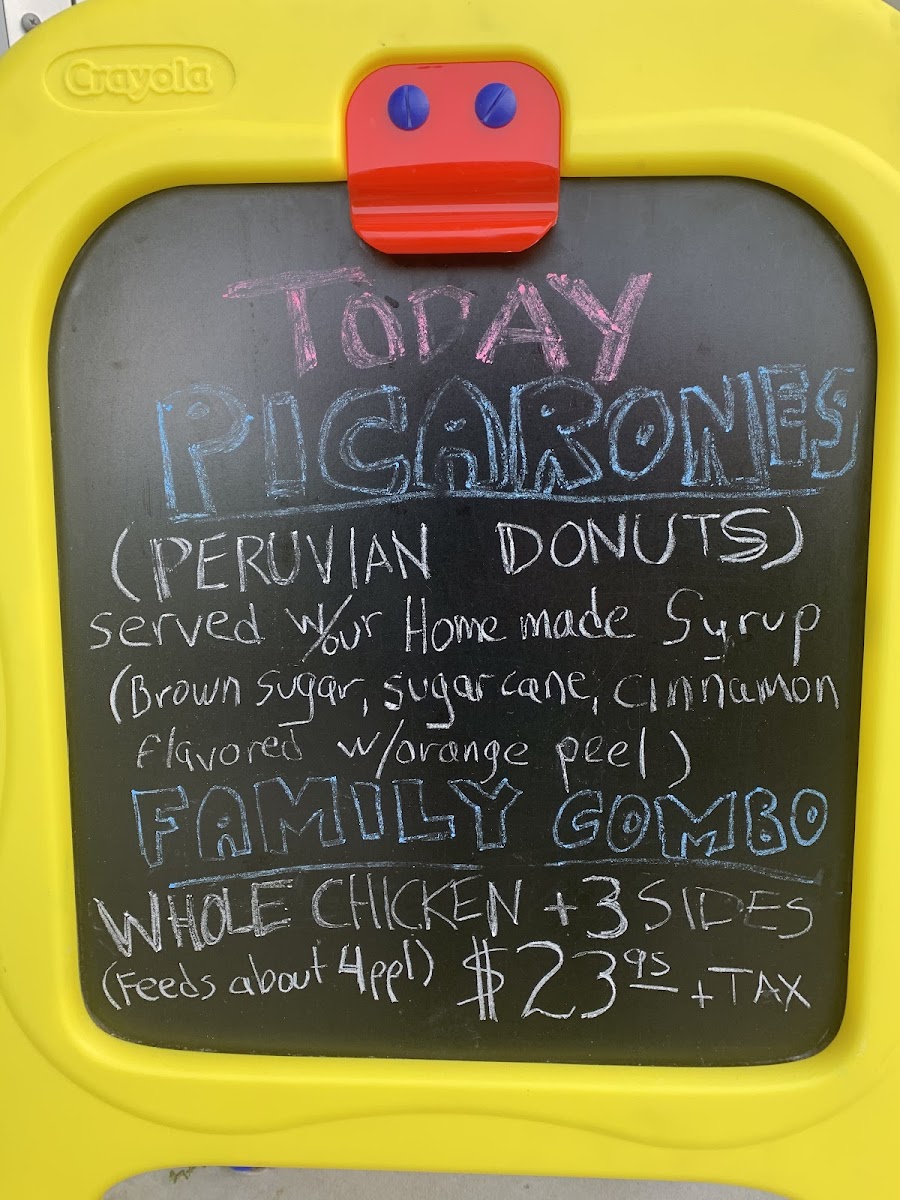 Crayola
TODAY
PICARONES
(PERUVIAN DONUTS)
served w/our Homemade Syrup
(Brown sugar, sugarcane, cinnamon
flavored w/orange peel)
FAMILY COMBO
WHOLE CHICKEN + 3 SIDES
(Feeds about 4ppl) $23.95 + TAX